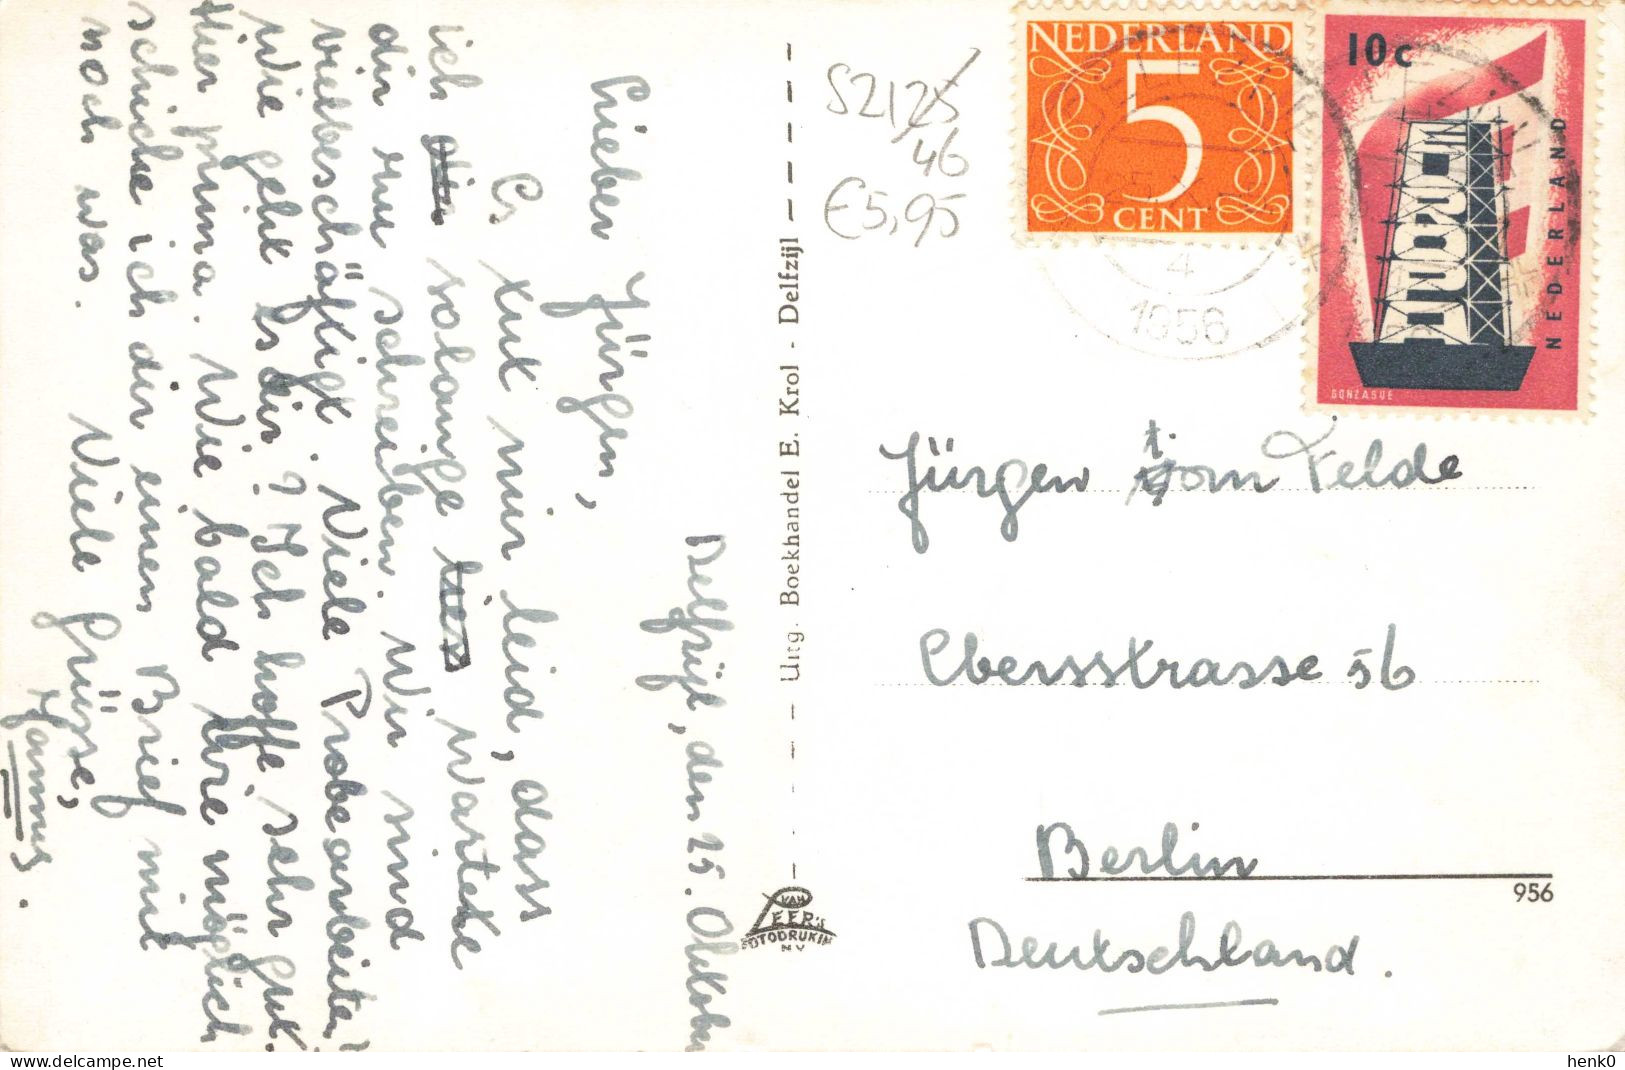 Delfzijl, den 25. Oktober
Lieber Jürgen,
Es tut mir leid, dass
ich solange wartete
dir zu schreiben. Wir sind
vielbeschäftigt. Viele Probearbeiten!
Wie geht es dir? Ich hoffe sehr gut.
Hier prima. Wie bald wie möglich
schicke ich dir einen Brief mit
noch was. Viele Grüsse,
Hannes.
Uitg. Boekhandel E. Krol - Delfzijl
VAN
LEER'S
FOTODRUKIN
N.V.
S2125
46
€5,95
NEDERLAND
5
CENT
10c
EUROPA
NEDERLAND
GONZAGUE
4
1956
Jürgen tom Felde
Ebersstrasse 56
Berlin
956
Deutschland.
henk0